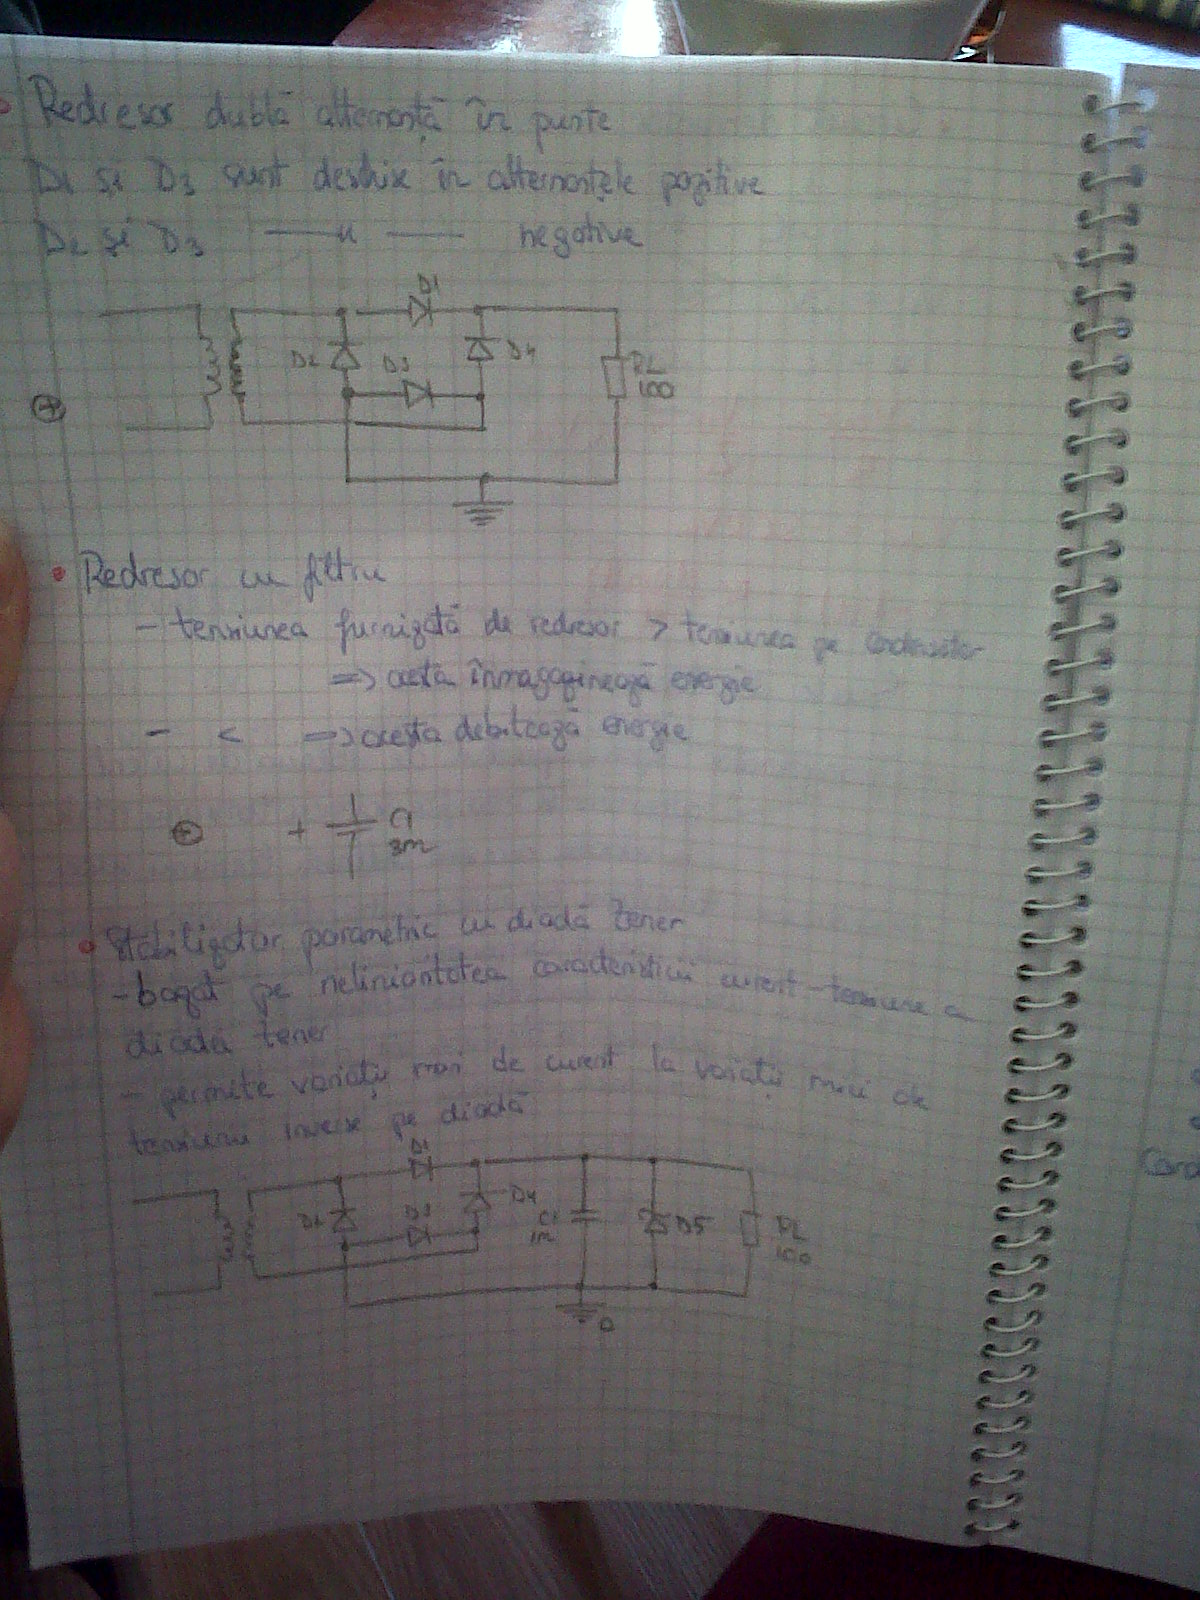 Redresor dublă alternanță în punte
D1 și D3 sunt deschise în alternanțele pozitive
D2 și D3 —— 〃 —— negative
D1
D2 D3 D4
RL
100
Redresor cu filtru
- tensiunea furnizată de redresor > tensiunea pe
=> acesta înmagazinează energie
- < => acesta debitează energie
+ C1
3m
Stabilizator parametric cu diodă Zener
- bazat pe neliniaritatea caracteristicii curent-tensiune a
diodă Zener
- permite variații mari de curent la variații mici de
tensiunii inverse pe diodă
D1
D2 D3 D4 C1 D5 RL
1m 100
0
Card